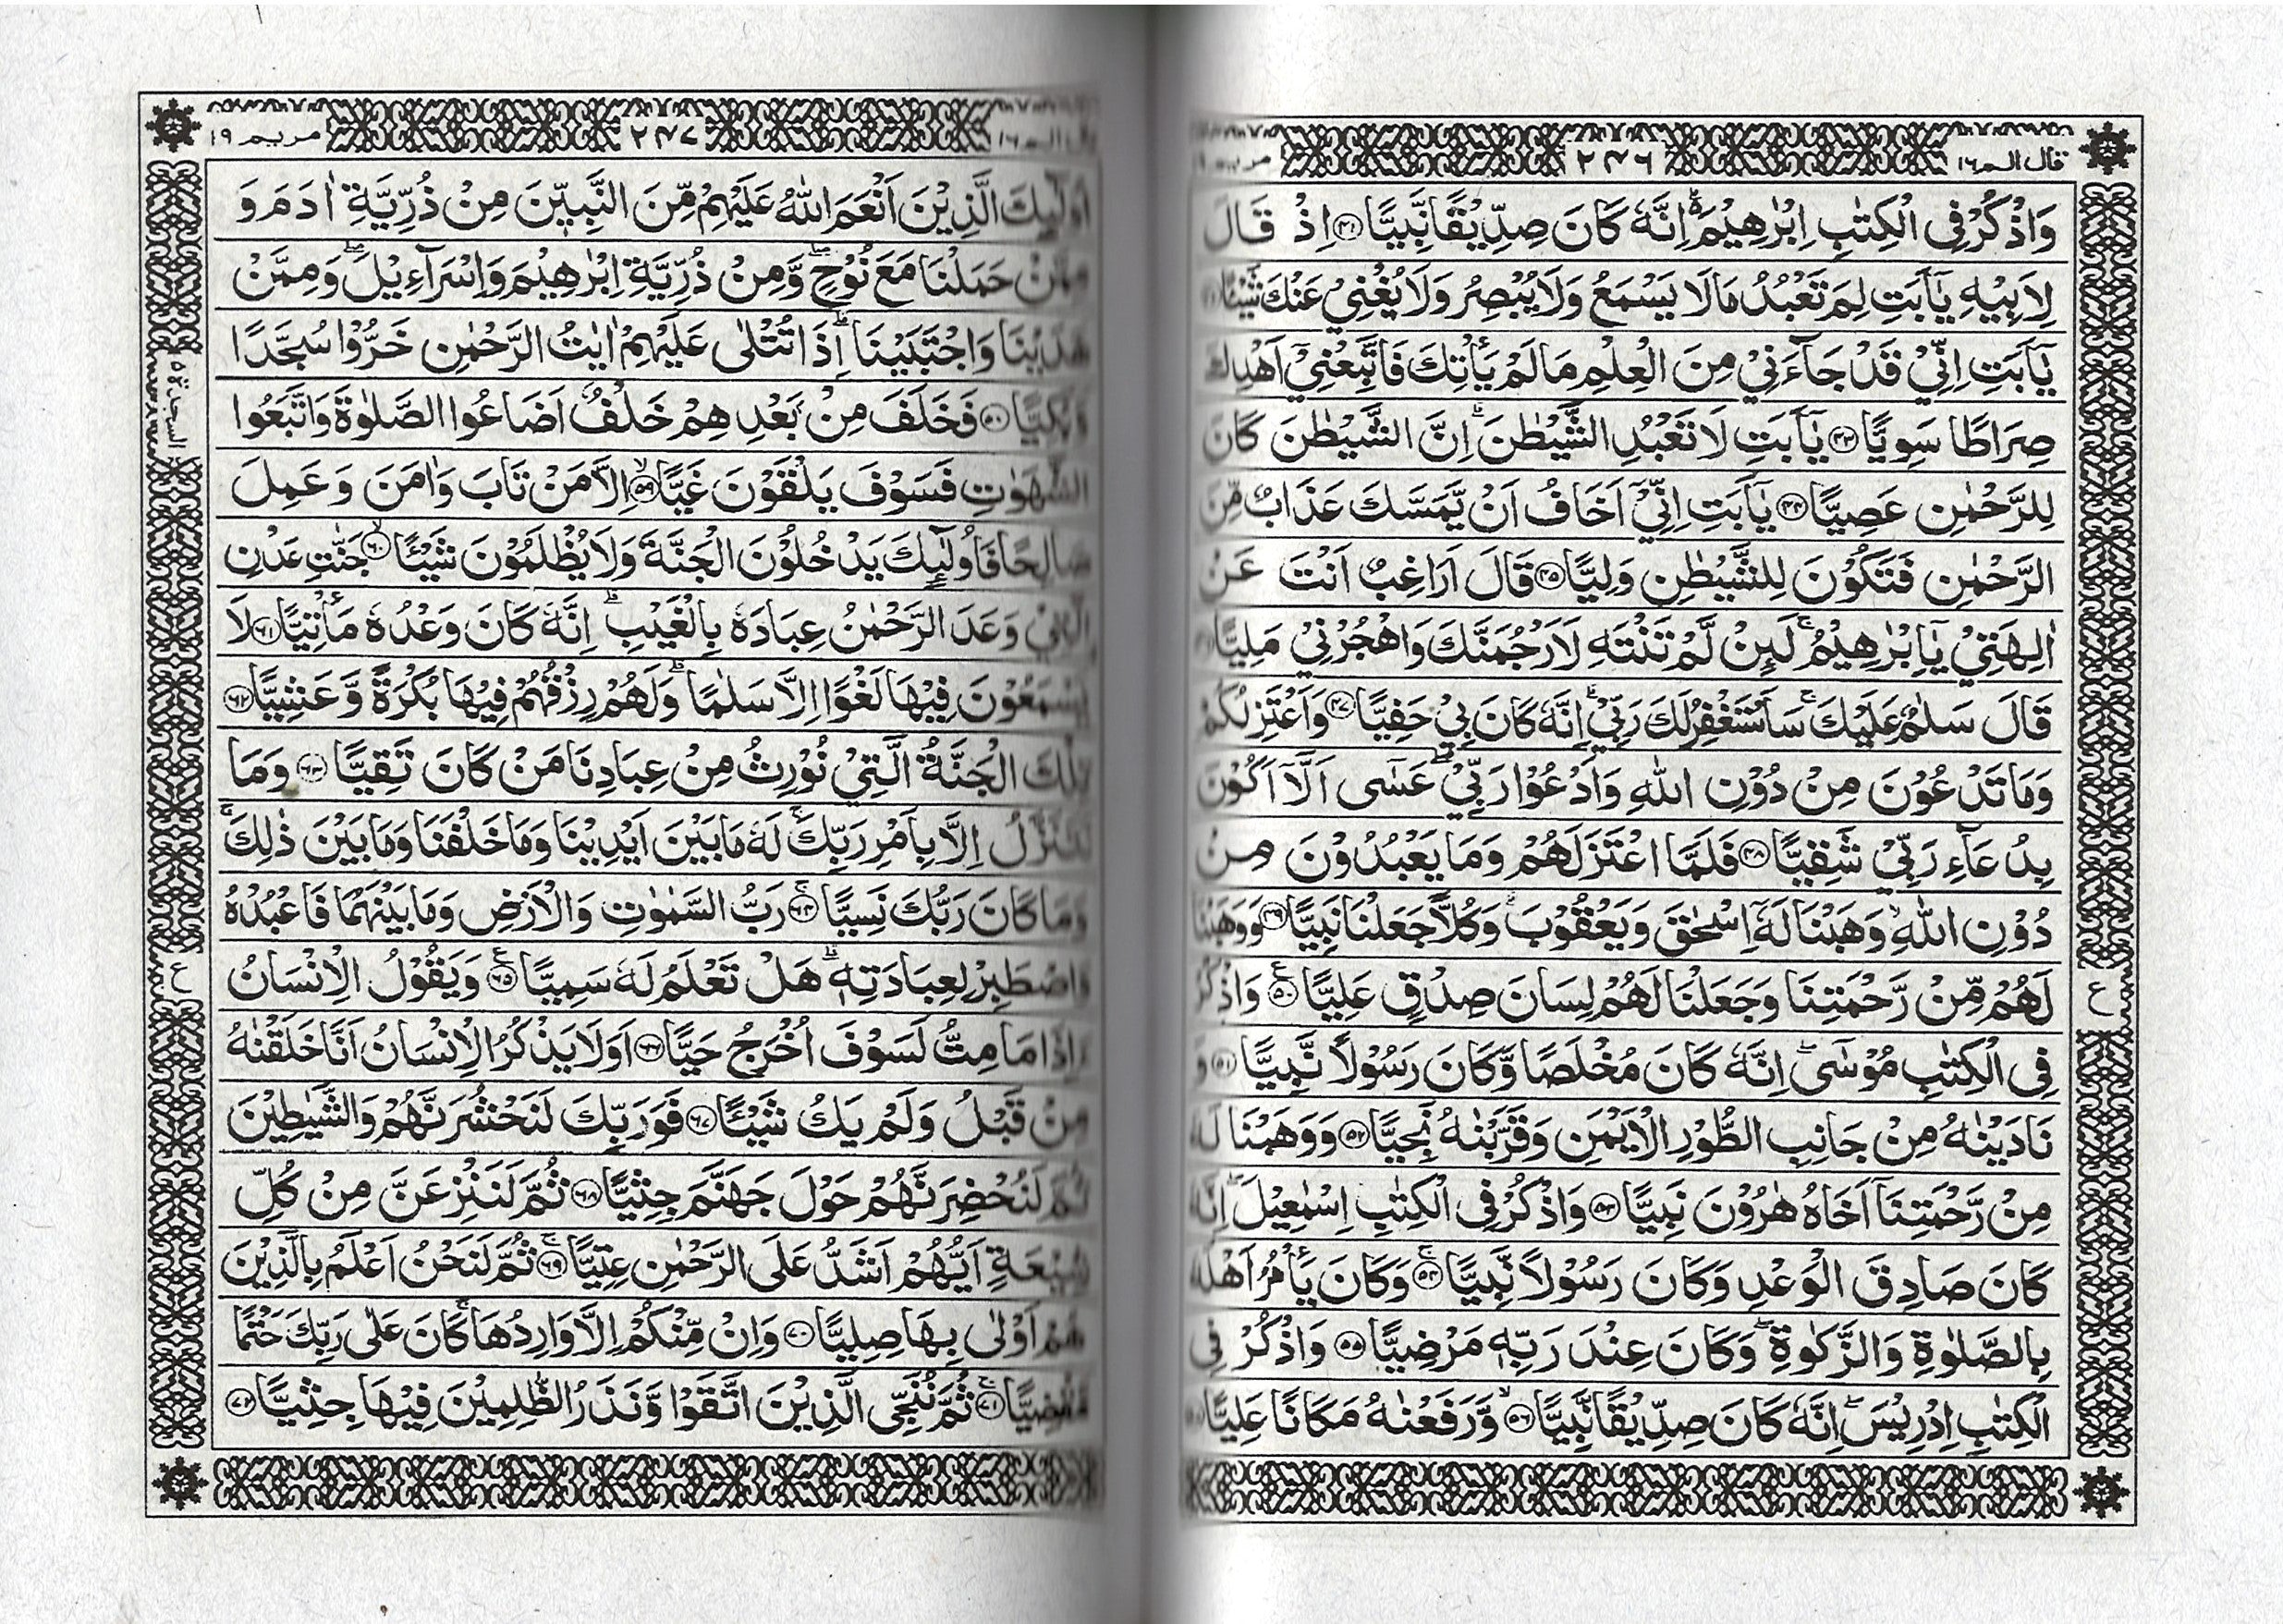 قال الم ١٦
٢٤٦
مريم ١٩
وَاذْكُرْ فِى الْكِتٰبِ اِبْرٰهِيْمَ ۬ؕ اِنَّهٗ كَانَ صِدِّيْقًا نَّبِيًّا ﴿۴۱﴾ اِذْ قَالَ
لِاَبِيْهِ يٰۤاَبَتِ لِمَ تَعْبُدُ مَا لَا يَسْمَعُ وَلَا يُبْصِرُ وَلَا يُغْنِيْ عَنْكَ شَيْـًٔا
يٰۤاَبَتِ اِنِّيْ قَدْ جَآءَنِيْ مِنَ الْعِلْمِ مَا لَمْ يَاْتِكَ فَاتَّبِعْنِيْۤ اَهْدِكَ
صِرَاطًا سَوِيًّا ﴿۴۳﴾ يٰۤاَبَتِ لَا تَعْبُدِ الشَّيْطٰنَ ؕ اِنَّ الشَّيْطٰنَ كَانَ
لِلرَّحْمٰنِ عَصِيًّا ﴿۴۴﴾ يٰۤاَبَتِ اِنِّيْۤ اَخَافُ اَنْ يَّمَسَّكَ عَذَابٌ مِّنَ
الرَّحْمٰنِ فَتَكُوْنَ لِلشَّيْطٰنِ وَلِيًّا ﴿۴۵﴾ قَالَ اَرَاغِبٌ اَنْتَ عَنْ
اٰلِهَتِيْ يٰۤاِبْرٰهِيْمُ ۚ لَئِنْ لَّمْ تَنْتَهِ لَاَرْجُمَنَّكَ وَاهْجُرْنِيْ مَلِيًّا
قَالَ سَلٰمٌ عَلَيْكَ ۚ سَاَسْتَغْفِرُ لَكَ رَبِّيْ ؕ اِنَّهٗ كَانَ بِيْ حَفِيًّا ﴿۴۷﴾ وَاَعْتَزِلُكُمْ
وَمَا تَدْعُوْنَ مِنْ دُوْنِ اللّٰهِ وَاَدْعُوْا رَبِّيْ ۖ عَسٰۤى اَلَّاۤ اَكُوْنَ
بِدُعَآءِ رَبِّيْ شَقِيًّا ﴿۴۸﴾ فَلَمَّا اعْتَزَلَهُمْ وَمَا يَعْبُدُوْنَ مِنْ
دُوْنِ اللّٰهِ ۙ وَهَبْنَا لَهٗۤ اِسْحٰقَ وَيَعْقُوْبَ ؕ وَكُلًّا جَعَلْنَا نَبِيًّا ﴿۴۹﴾ وَوَهَبْنَا
لَهُمْ مِّنْ رَّحْمَتِنَا وَجَعَلْنَا لَهُمْ لِسَانَ صِدْقٍ عَلِيًّا ﴿۵۰﴾ وَاذْكُرْ
ع
فِى الْكِتٰبِ مُوْسٰۤى ۫ اِنَّهٗ كَانَ مُخْلَصًا وَّكَانَ رَسُوْلًا نَّبِيًّا ﴿۵۱﴾ وَ
نَادَيْنٰهُ مِنْ جَانِبِ الطُّوْرِ الْاَيْمَنِ وَقَرَّبْنٰهُ نَجِيًّا ﴿۵۲﴾ وَوَهَبْنَا لَهٗ
مِنْ رَّحْمَتِنَاۤ اَخَاهُ هٰرُوْنَ نَبِيًّا ﴿۵۳﴾ وَاذْكُرْ فِى الْكِتٰبِ اِسْمٰعِيْلَ ۫ اِنَّهٗ
كَانَ صَادِقَ الْوَعْدِ وَكَانَ رَسُوْلًا نَّبِيًّا ﴿۵۴﴾ وَكَانَ يَاْمُرُ اَهْلَهٗ
بِالصَّلٰوةِ وَالزَّكٰوةِ ۪ وَكَانَ عِنْدَ رَبِّهٖ مَرْضِيًّا ﴿۵۵﴾ وَاذْكُرْ فِى
الْكِتٰبِ اِدْرِيْسَ ۫ اِنَّهٗ كَانَ صِدِّيْقًا نَّبِيًّا ﴿۵۶﴾ وَّرَفَعْنٰهُ مَكَانًا عَلِيًّا
قال الم ١٦
٢٤٧
مريم ١٩
اُولٰٓئِكَ الَّذِيْنَ اَنْعَمَ اللّٰهُ عَلَيْهِمْ مِّنَ النَّبِيّٖنَ مِنْ ذُرِّيَّةِ اٰدَمَ وَ
مِمَّنْ حَمَلْنَا مَعَ نُوْحٍ ۫ وَّمِنْ ذُرِّيَّةِ اِبْرٰهِيْمَ وَاِسْرَآءِيْلَ ۫ وَمِمَّنْ
هَدَيْنَا وَاجْتَبَيْنَا ؕ اِذَا تُتْلٰى عَلَيْهِمْ اٰيٰتُ الرَّحْمٰنِ خَرُّوْا سُجَّدًا
السجدة ٥
وَّبُكِيًّا ﴿۵۸﴾ فَخَلَفَ مِنْۢ بَعْدِهِمْ خَلْفٌ اَضَاعُوا الصَّلٰوةَ وَاتَّبَعُوا
الشَّهَوٰتِ فَسَوْفَ يَلْقَوْنَ غَيًّا ﴿۵۹﴾ اِلَّا مَنْ تَابَ وَاٰمَنَ وَعَمِلَ
صَالِحًا فَاُولٰٓئِكَ يَدْخُلُوْنَ الْجَنَّةَ وَلَا يُظْلَمُوْنَ شَيْـًٔا ﴿۶۰﴾ جَنّٰتِ عَدْنِ
الَّتِيْ وَعَدَ الرَّحْمٰنُ عِبَادَهٗ بِالْغَيْبِ ؕ اِنَّهٗ كَانَ وَعْدُهٗ مَاْتِيًّا ﴿۶۱﴾ لَا
يَسْمَعُوْنَ فِيْهَا لَغْوًا اِلَّا سَلٰمًا ؕ وَلَهُمْ رِزْقُهُمْ فِيْهَا بُكْرَةً وَّعَشِيًّا ﴿۶۲﴾
تِلْكَ الْجَنَّةُ الَّتِيْ نُوْرِثُ مِنْ عِبَادِنَا مَنْ كَانَ تَقِيًّا ﴿۶۳﴾ وَمَا
نَتَنَزَّلُ اِلَّا بِاَمْرِ رَبِّكَ ۚ لَهٗ مَا بَيْنَ اَيْدِيْنَا وَمَا خَلْفَنَا وَمَا بَيْنَ ذٰلِكَ ۚ
وَمَا كَانَ رَبُّكَ نَسِيًّا ﴿۶۴﴾ رَبُّ السَّمٰوٰتِ وَالْاَرْضِ وَمَا بَيْنَهُمَا فَاعْبُدْهُ
وَاصْطَبِرْ لِعِبَادَتِهٖ ؕ هَلْ تَعْلَمُ لَهٗ سَمِيًّا ﴿۶۵﴾ وَيَقُوْلُ الْاِنْسَانُ
ع
ءَاِذَا مَا مِتُّ لَسَوْفَ اُخْرَجُ حَيًّا ﴿۶۶﴾ اَوَلَا يَذْكُرُ الْاِنْسَانُ اَنَّا خَلَقْنٰهُ
مِنْ قَبْلُ وَلَمْ يَكُ شَيْـًٔا ﴿۶۷﴾ فَوَرَبِّكَ لَنَحْشُرَنَّهُمْ وَالشَّيٰطِيْنَ
ثُمَّ لَنُحْضِرَنَّهُمْ حَوْلَ جَهَنَّمَ جِثِيًّا ﴿۶۸﴾ ثُمَّ لَنَنْزِعَنَّ مِنْ كُلِّ
شِيْعَةٍ اَيُّهُمْ اَشَدُّ عَلَى الرَّحْمٰنِ عِتِيًّا ﴿۶۹﴾ ثُمَّ لَنَحْنُ اَعْلَمُ بِالَّذِيْنَ
هُمْ اَوْلٰى بِهَا صِلِيًّا ﴿۷۰﴾ وَاِنْ مِّنْكُمْ اِلَّا وَارِدُهَا ۚ كَانَ عَلٰى رَبِّكَ حَتْمًا
مَّقْضِيًّا ﴿۷۱﴾ ثُمَّ نُنَجِّى الَّذِيْنَ اتَّقَوْا وَّنَذَرُ الظّٰلِمِيْنَ فِيْهَا جِثِيًّا ﴿۷۲﴾